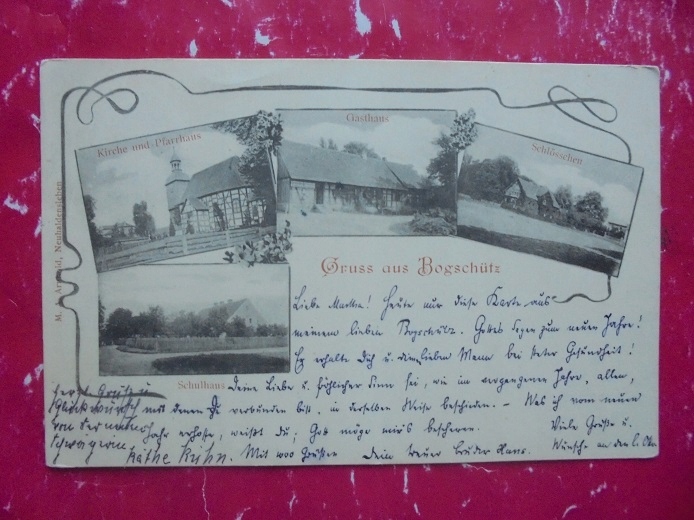 Kirche und Pfarrhaus
Gasthaus
Schlösschen
M. Arnold, Neuhaldensleben
Gruss aus Bogschütz
Schulhaus
Liebe Martha! Heute nur diese Karte aus
meinem lieben Bogschütz. Gottes Segen zum neuen Jahre!
Er erhalte Dich u. den lieben Mann bei steter Gesundheit!
Deine Liebe u. fröhlicher Sinn sei, wie im vergangenen Jahre, allen,
mit denen Du verbunden bist, in derselben Weise beschieden. – Was ich vom neuen
Jahr erhoffe, weißt Du; Gott möge mir's bescheren.
Mit 1000 Grüßen Dein treuer Bruder Hans.
Viele Grüße u.
Wünsche an den l.
Grüße
Glückwünsche
von Deiner
Schwägerin
Käthe Kuhn.